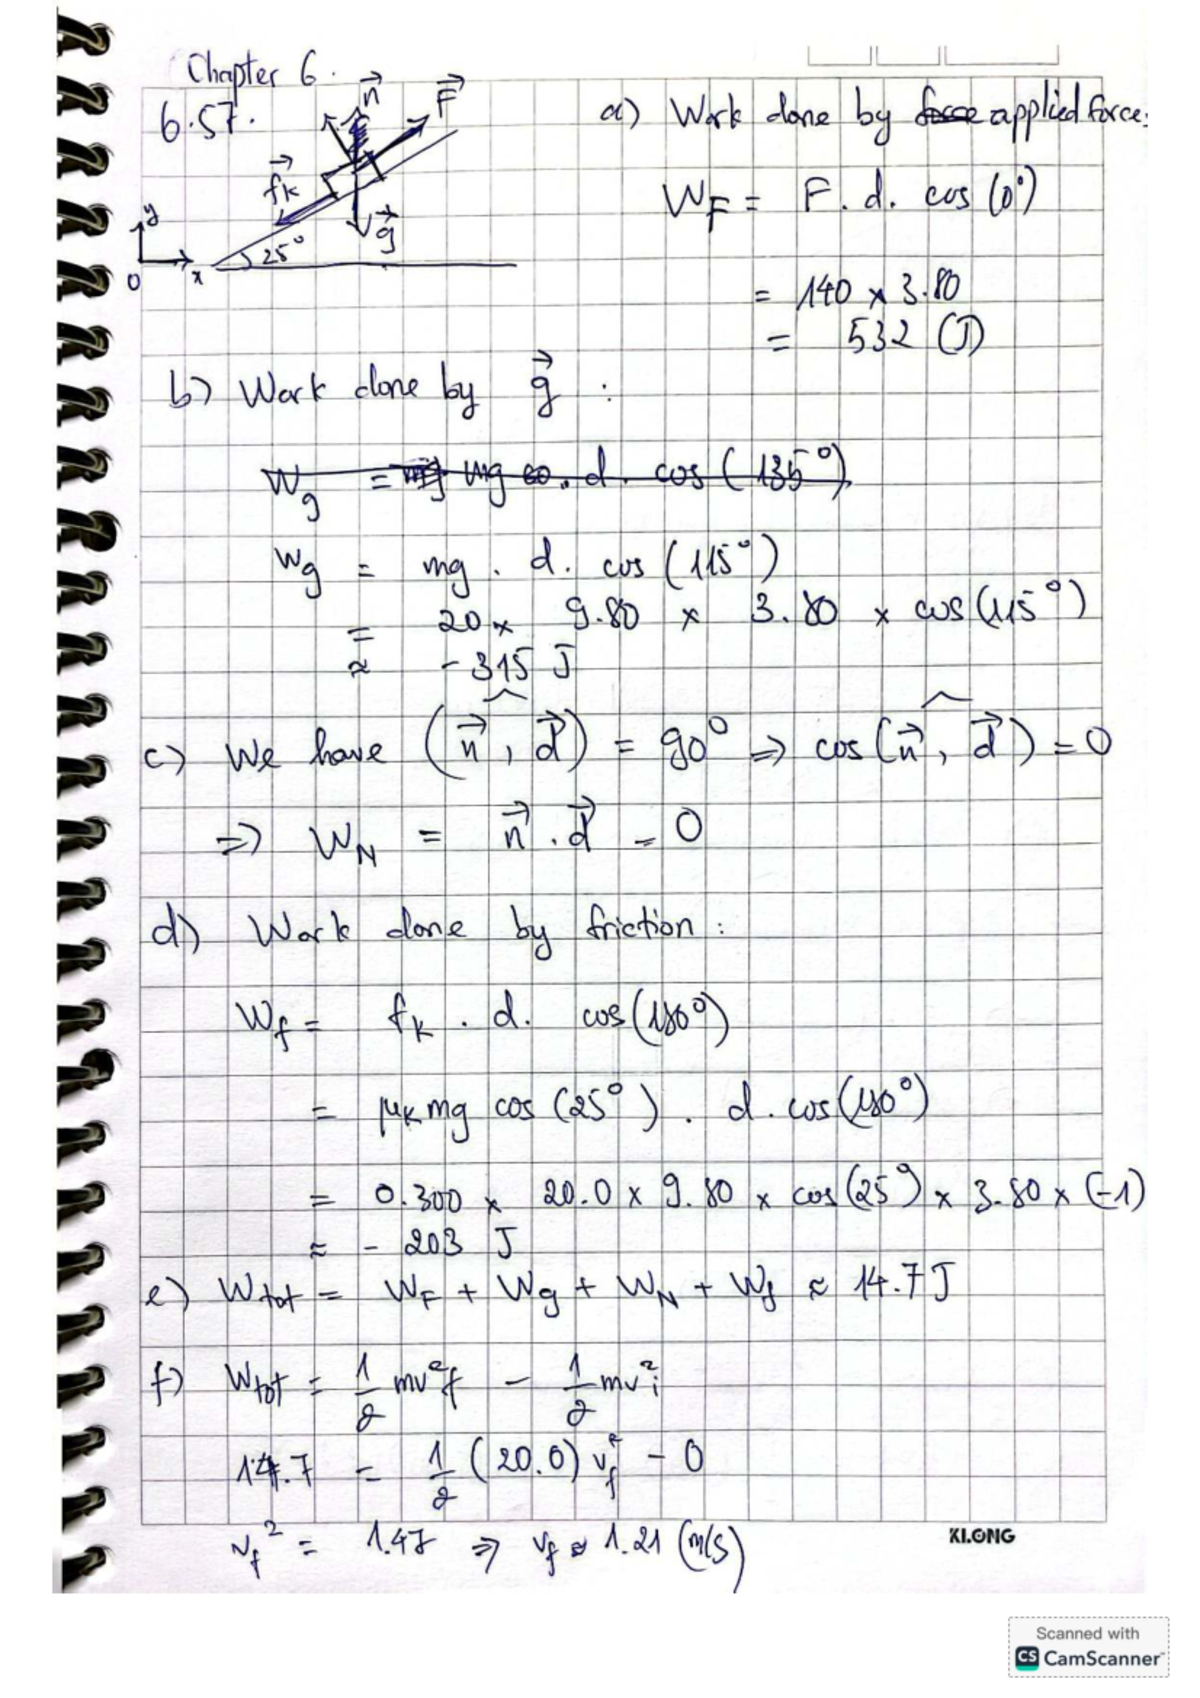 Chapter 6.
6.57.
n⃗
F⃗
f⃗k
g⃗
25°
y
O
x
a) Work done by applied force:
W_F = F. d. cos (0°)
= 140 x 3.80
= 532 (J)
b) Work done by g⃗ :
W_g = mg . d. cos (135°)
W_g = mg . d. cos (115°)
= 20 x 9.80 x 3.80 x cos(115°)
≈ - 315 J
c) We have (n⃗, d⃗) = 90° => cos(n⃗, d⃗) = 0
=> W_N = n⃗ . d⃗ = 0
d) Work done by friction :
W_f = f_k . d. cos(180°)
= μ_k mg cos (25°) . d. cos(180°)
= 0.300 x 20.0 x 9.80 x cos(25°) x 3.80 x (-1)
≈ - 203 J
e) W_tot = W_F + W_g + W_N + W_f ≈ 14.7 J
f) W_tot = 1/2 mv²f - 1/2 mv²i
14.7 = 1/2 (20.0) v_f² - 0
v_f² = 1.47 => v_f ≈ 1.21 (m/s)
KLONG
Scanned with
CS CamScanner